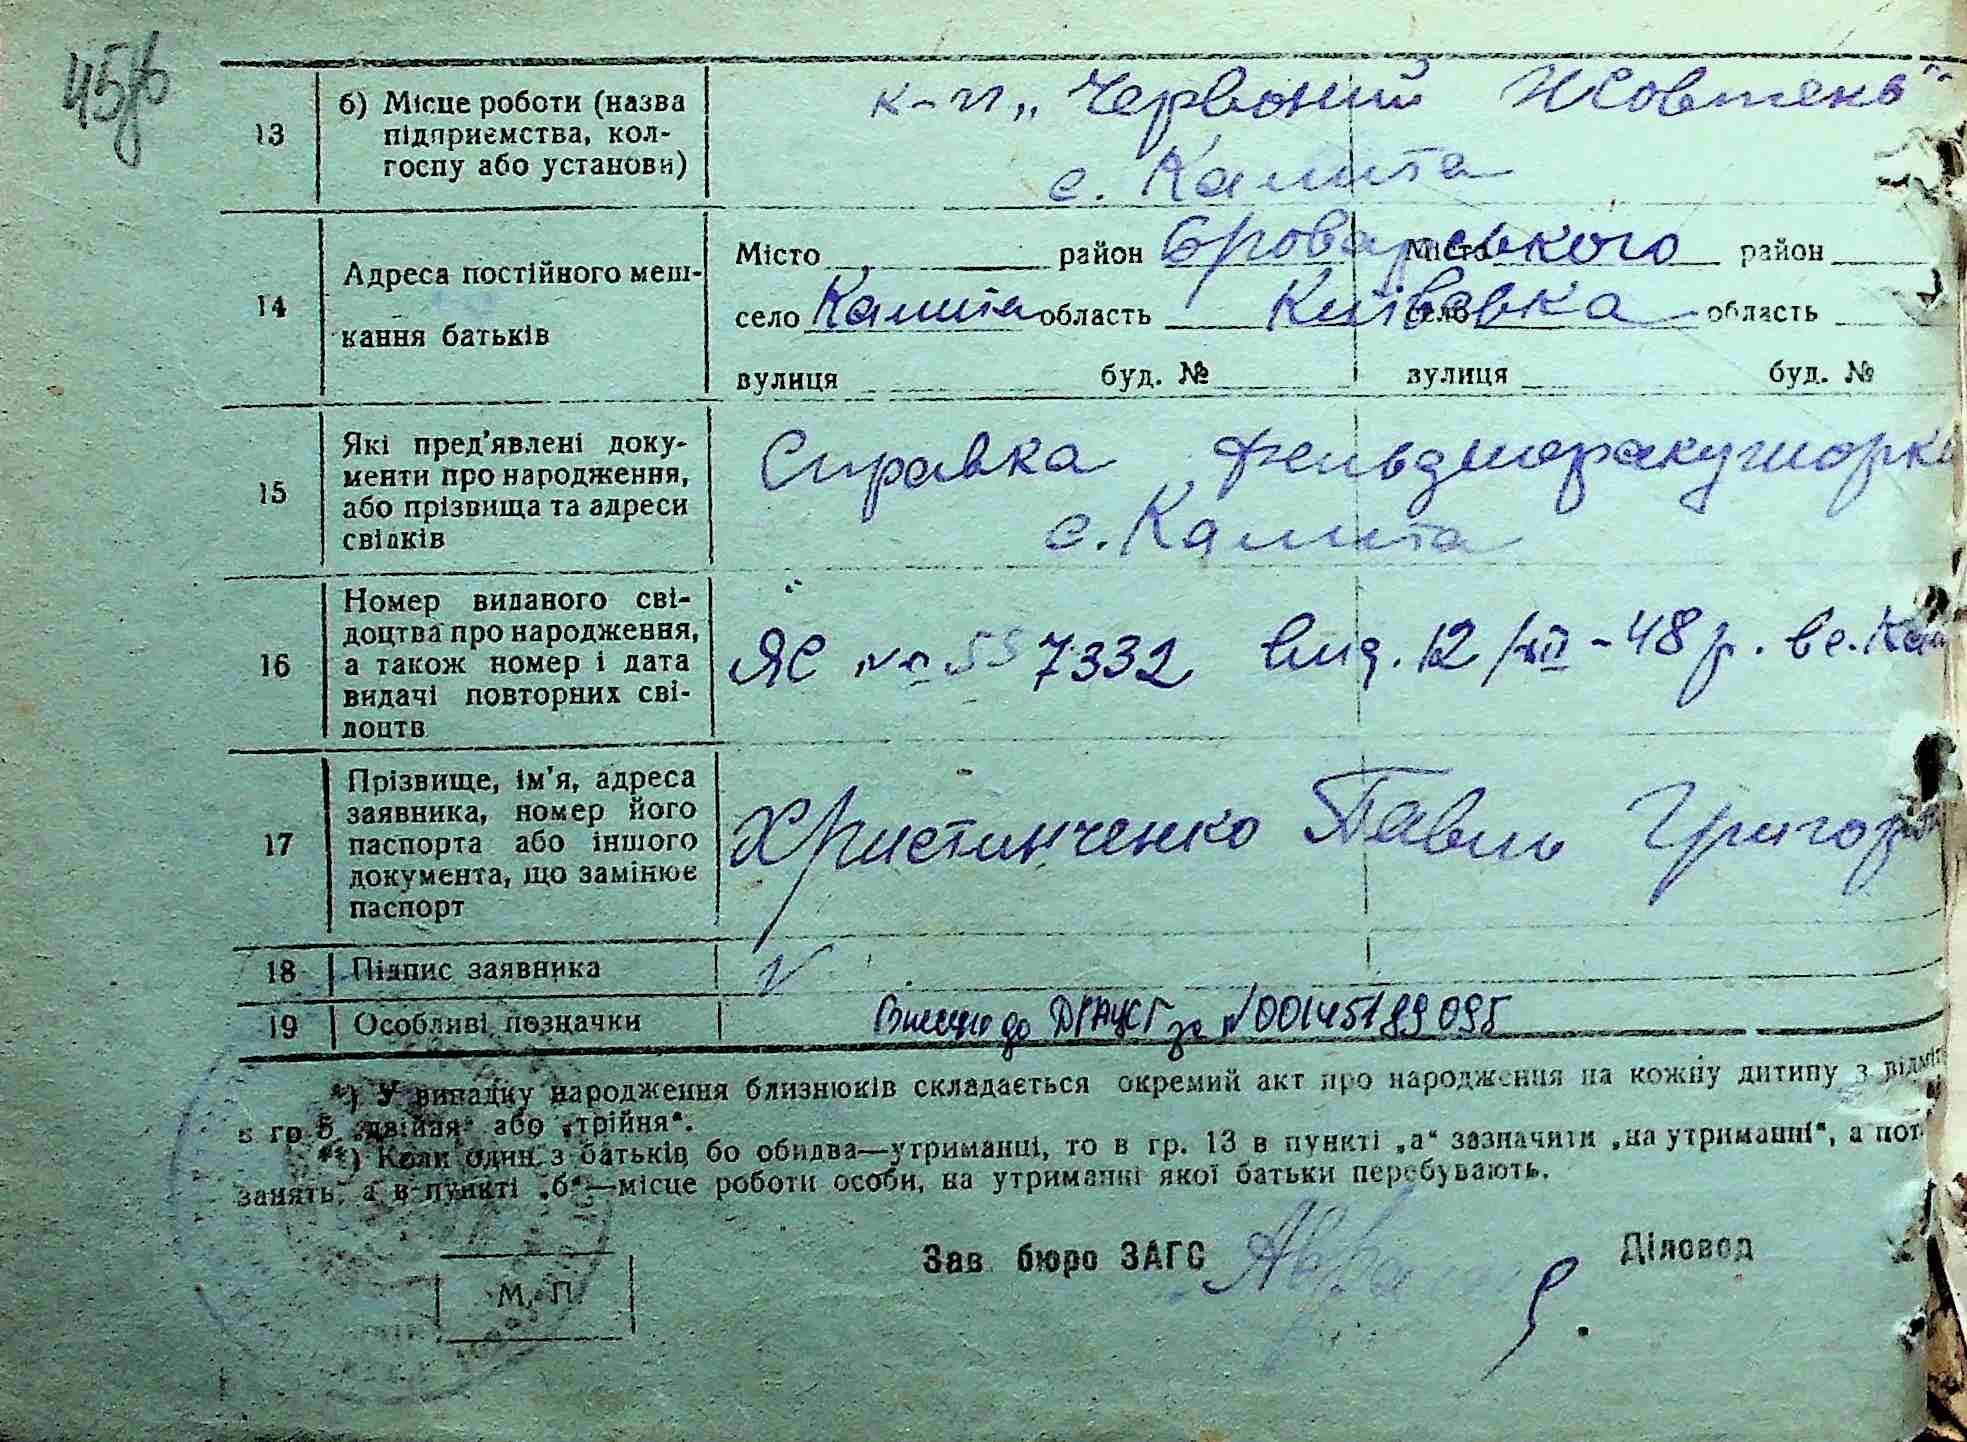 45
13
б) Місце роботи (назва
підприємства, кол-
госпу або установи)
к-п „Червоний Жовтень"
с. Калита
14
Адреса постійного меш-
кання батьків
Місто район Броварського Місто район
село Калита область Київська село область
вулиця буд. № вулиця буд. №
15
Які пред'явлені доку-
менти про народження,
або прізвища та адреси
свідків
Справка фельдшеракушорки
с. Калита
16
Номер виданого сві-
доцтва про народження,
а також номер і дата
видачі повторних сві-
доцтв
ЯС № 557332 вид. 12/XII-48 р. в с. Кали
17
Прізвище, ім'я, адреса
заявника, номер його
паспорта або іншого
документа, що замінює
паспорт
Христинченко Павло Григор
18 Підпис заявника
19 Особливі позначки
Внесено до ДРАЦСГ за №00145189095
*) У випадку народження близнюків складається окремий акт про народження на кожну дитину з відміт
в гр 5 „двійня" або „трійня".
**) Коли один з батьків бо обидва—утриманці, то в гр. 13 в пункті „а" зазначити „на утриманні", а пот
занять, а в пункті „б"—місце роботи особи, на утриманні якої батьки перебувають.
Зав. бюро ЗАГС
Діловод
М. П.